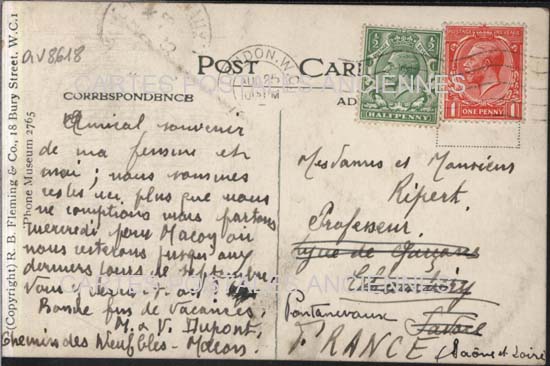 av8618
(Copyright) R. B. Fleming & Co., 18 Bury Street, W.C.1
'Phone Museum 2765
POST CARD
CORRESPONDENCE
AD
LONDON. W.
AUG 25
HALFPENNY
POSTAGE REVENUE
ONE PENNY
CARTES POSTALES ANCIENNES
Amical souvenir
de ma femme et
moi; nous sommes
restés ici plus que nous
ne comptions mais partons
mercredi pour Macon où
nous resterons jusqu'aux
derniers jours de septembre
Vous
Bonne fin de vacances,
M. & V. Dupont,
Chemin des Neufbles - Macon.
Mesdames et Monsieur
Ripert,
Professeur
rue de
Chambéry
Pontanevaux
Savoie
FRANCE (Saône et Loire)
CARTES POSTALES ANCIENNES